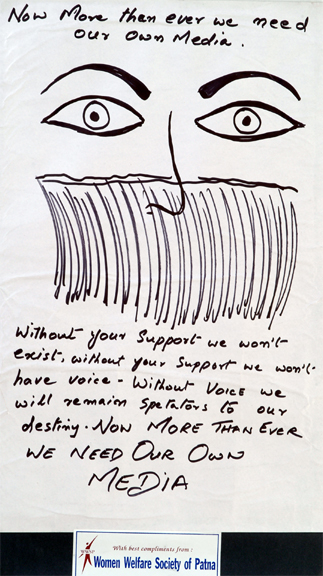 Now More than ever we need
our own Media.
Without your Support we won't
exist, without your Support we won't
have voice - Without Voice we
will remain Spetators to our
destiny. NOW MORE THAN EVER
WE NEED OUR OWN
MEDIA
With best compliments from :
Women Welfare Society of Patna